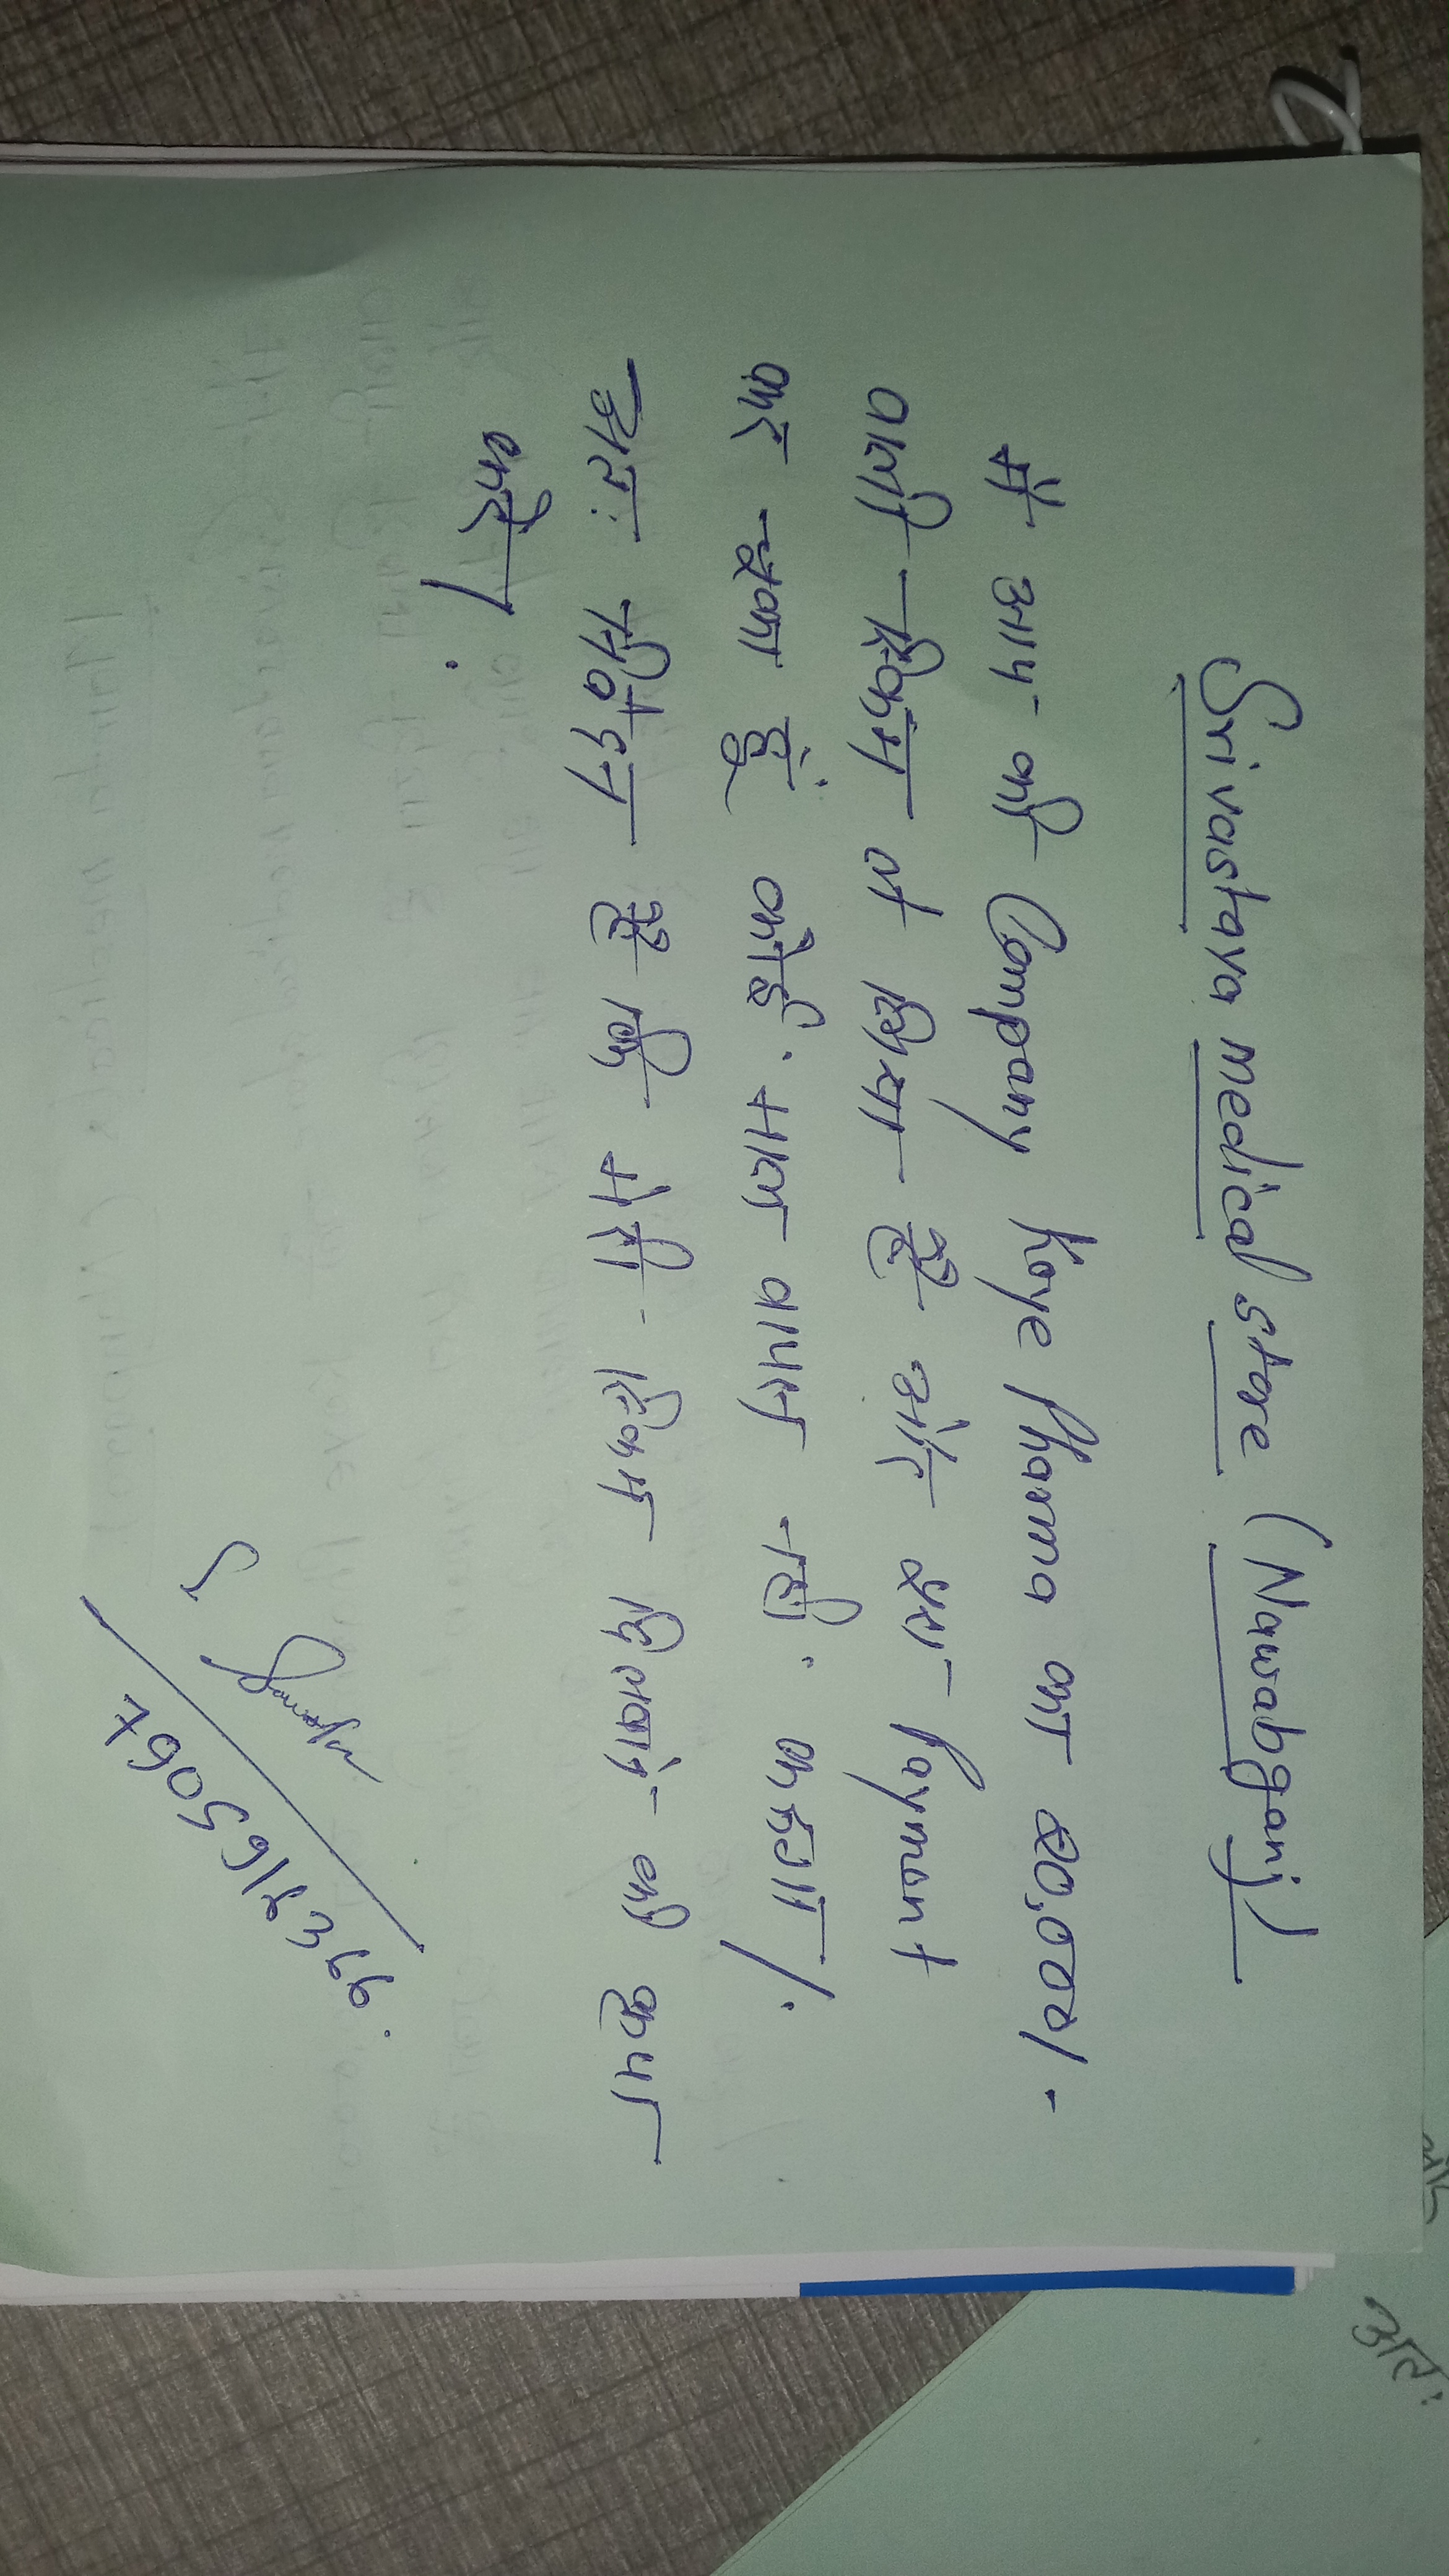 Srivastava medical store (Nawabganj)
मैं आप की Company Kaye Pharma का 20,000/-
वाली स्किम ले लिया है और सब Payment
कर चुका हूँ कोई माल वापस नहीं करूगाँ /.
अतः निवेदन है कि मेरी स्किम दिलवाने की कृपा
करें।
9934165067
अतः